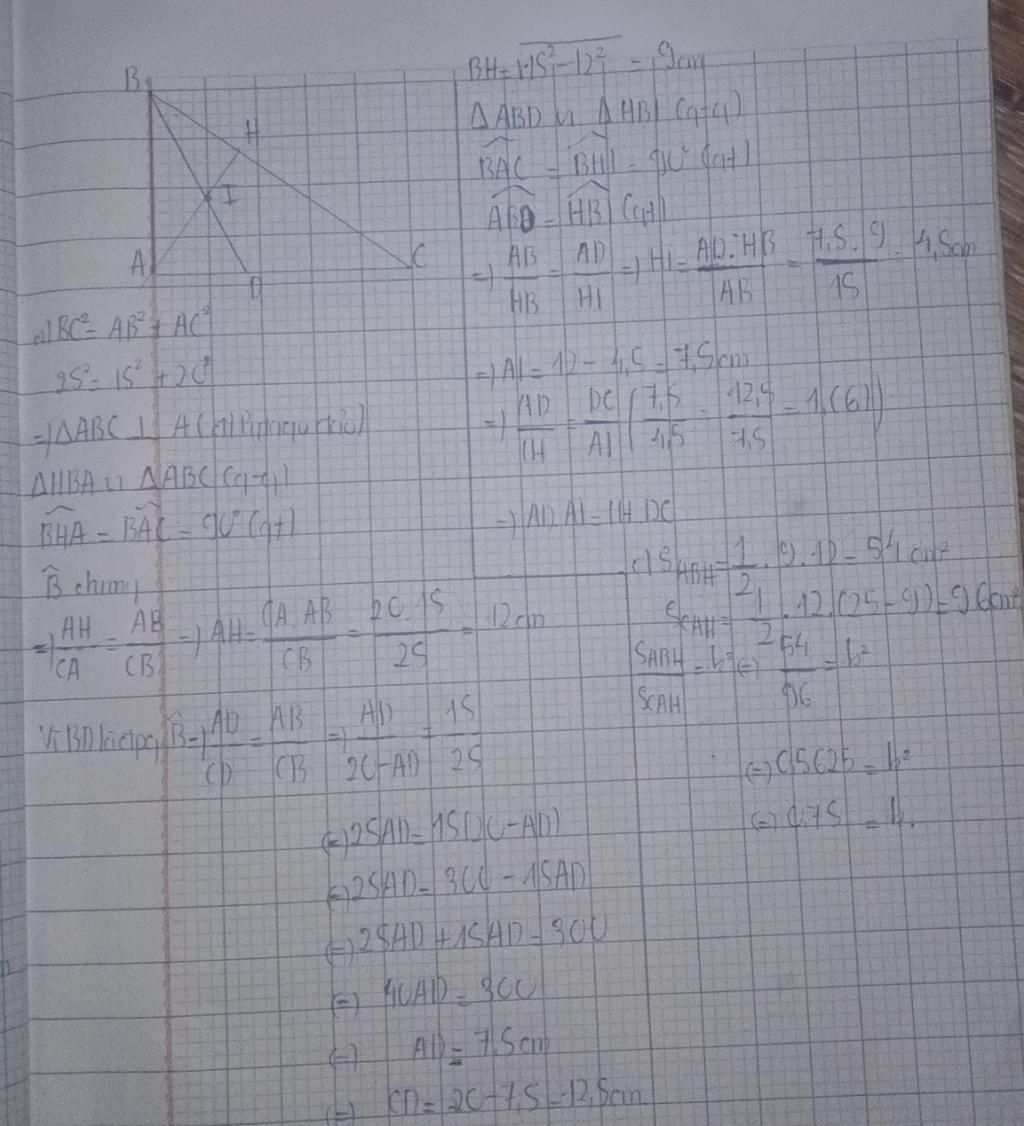 B
H
I
A
D
C
a) BC² = AB² + AC²
25² = 15² + 20²
=) ΔABC ⊥ A
ΔHBA ᔕ ΔABC (g-g)
BHA = BAC = 90° (gt)
B chung
=) AH/CA = AB/CB =) AH = CA.AB/CB = 20.15/25 = 12cm
Vì BD là tia pg B =) AD/CD = AB/CB =) AD/20-AD = 15/25
(=) 25AD = 15(20-AD)
(=) 25AD = 300 - 15AD
(=) 25AD + 15AD = 300
(=) 40AD = 300
(=) AD = 7,5cm
(=) CD = 20-7,5 = 12,5cm
BH = √15²-12² = 9cm
ΔABD ᔕ ΔHBI (g-g)
BAC = BHI = 90° (gt)
ABD = HBI (gt)
=) AB/HB = AD/HI =) HI = AD.HB/AB = 7,5.9/15 = 4,5cm
=) AI = 12 - 4,5 = 7,5cm
=) AD/IH = DC/AI (7,5/4,5 = 12,5/7,5 = 1,(6))
=) AD.AI = IH.DC
c) S = 1/2 . 9.12 = 54 cm²
SCAH = 1/2 .12.(25-9) = 96cm²
SABH/SCAH = k² (=) 54/96 = k²
(=) 0,5625 = k²
(=) 0,75 = k.